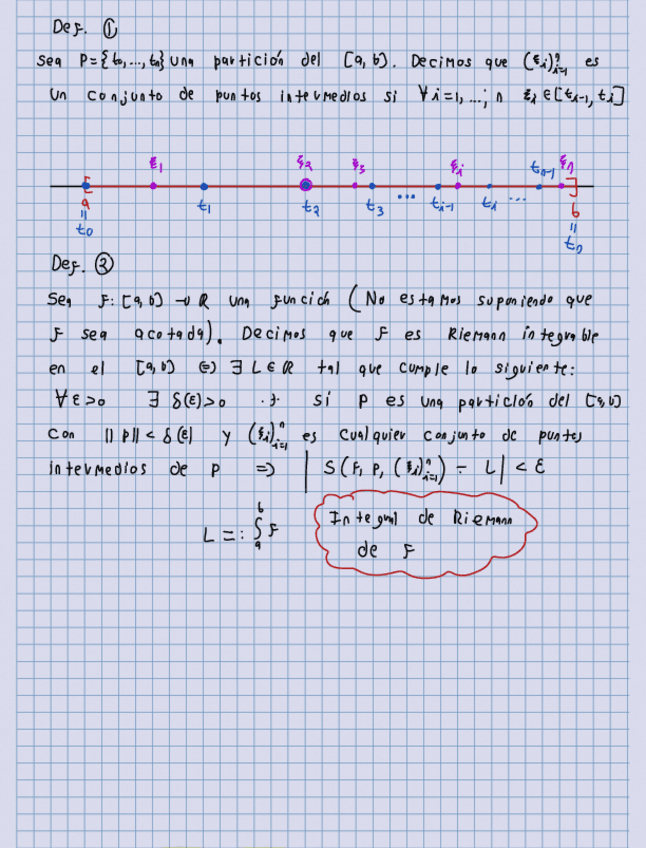 Def. ①
Sea P={t₀,...,tₙ} una partición del [a, b]. Decimos que (ξᵢ)ⁿᵢ₌₁ es
un conjunto de puntos intermedios si ∀ i=1, ..., n ξᵢ ∈ [tᵢ₋₁, tᵢ]
ξ₁ ξ₂ ξ₃ ξᵢ tₙ₋₁ ξₙ
[ ]
a t₁ t₂ t₃ ... tᵢ₋₁ tᵢ ... b
= =
t₀ tₙ
Def. ②
Sea f: [a, b] → ℝ una función (No estamos suponiendo que
f sea acotada). Decimos que f es Riemann integrable
en el [a, b] ⇔ ∃ L ∈ ℝ tal que cumple lo siguiente:
∀ ε>0 ∃ δ(ε)>0 .t. si P es una partición del [a, b]
con ||P|| < δ(ε) y (ξᵢ)ⁿᵢ₌₁ es cualquier conjunto de puntos
intermedios de P => | S(f, P, (ξᵢ)ⁿᵢ₌₁) - L | < ε
L =: ∫ₐᵇ f
Integral de Riemann
de f